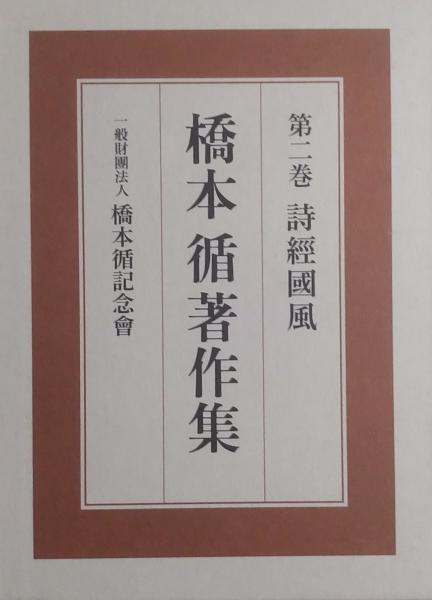 第二巻 詩經國風
橋本循著作集
一般財團法人 橋本循記念會